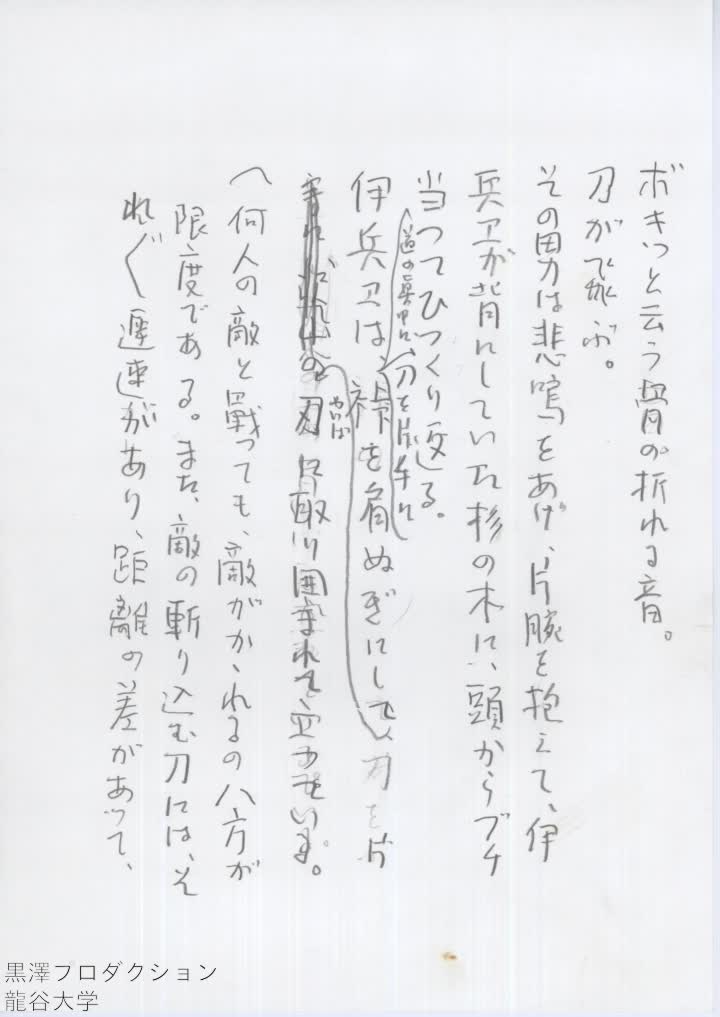 ボキッと云う骨の折れる音。
刀が飛ぶ。
その男は悲鳴をあげ、片腕を抱えて、伊
兵卫が背にしていた杉の木に、頭からブチ
当ってひっくり返る。
道の真中に、刀を片手に
伊兵卫は、裃を肩ぬぎにして、刀を片
の刃に取り囲まれて立っている。
やいば
へ何人の敵と戦っても、敵がかゝれるの八方が
限度である。また、敵の斬り込む刀には、そ
れ〲遅速があり、距離の差があって、
黒澤フロダクション
龍谷大学